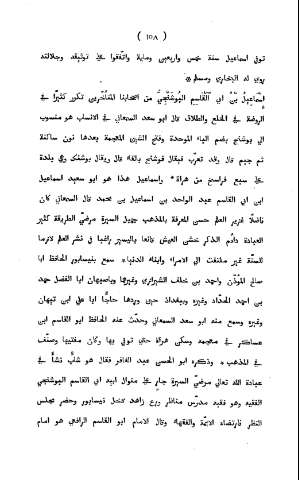 ( ١٥٨ )
توفي اسماعيل سنة خمس واربعين وماية واتّفقوا على توثيقه وجلالته
روى له البخاري ومسلم
اسماعيل بن ابي القاسم البوشنجي من اصحابنا المتأخرين تكرر كثيرًا في
الروضة في الخلع والطلاق قال ابو سعد السمعاني في الانساب هو منسوب
الى بوشنج بضم الباء الموحدة وفتح الشين المعجمة بعدها نون ساكنة
ثم جيم قال وقد تعرّب فيقال فوشنج بالفاء قال ويقال بوشنك وهي بلدة
على سبع فراسخ من هراة واسماعيل هذا هو ابو سعيد اسماعيل
ابن ابي القاسم عبد الواحد بن اسماعيل بن محمد قال السمعاني كان
فاضلًا غزير العلم حسن المعرفة بالمذهب جميل السيرة مرضيّ الطريقة كثير
العبادة دائم الذكر خشن العيش قانعا باليسير راغبا في نشر العلم لازما
للسنّة غير ملتفت الى الامراء وابناء الدنياء سمع بنيسابور الحافظ ابا
صالح المؤذّن واحمد بن خلف الشيرازي وغيرها وباصبهان ابا الفضل حمد
بن احمد الحدّاد وغيره وببغداد حين وردها حاجًّا ابا علي ابن نبهان
وغيره وسمع منه ابو سعد السمعاني وحدّث عنه الحافظ ابو القاسم ابن
عساكر في معجمه وسكن هراة حتى توفي بها وكان مفتيها وصنّف
في المذهب وذكره ابو الحسن عبد الغافر فقال هو شابّ نشأ في
عبادة الله تعالى مرضيّ السيرة جارٍ على منوال ابيه ابي القاسم البوشنجي
الفقيه وهو فقيه مدرّس مناظر ورع زاهد دخل نيسابور وحضر مجلس
النظر فارتضاه الائمّة والفقهاء وقال الامام ابو القاسم الرافعي هو امام